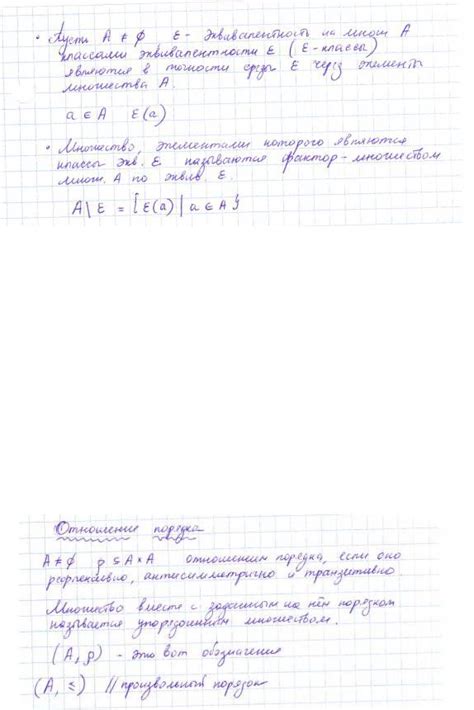 • Пусть A ≠ ∅ ε - эквивалентность на множ A
классами эквивалентности ε (ε-классы)
являются в точности срезы ε через элементы
множества A.
a ∈ A ε(a)
• Множество, элементами которого являются
классы экв. ε называются фактор-множеством
множ. A по эквив. ε.
A\ε = {ε(a) | a ∈ A}
Отношение порядка
A ≠ ∅ ρ ⊆ A×A отношением порядка, если оно
рефлексивно, антисимметрично и транзитивно
Множество вместе с заданным на нём порядком
называется упорядочинным множеством.
(A, ρ) - это вот обозначение
(A, ≤) // произвольный порядок